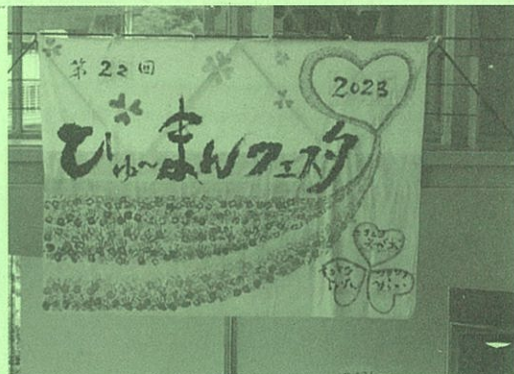 第22回
2023
ひゅ〜まんフェスタ